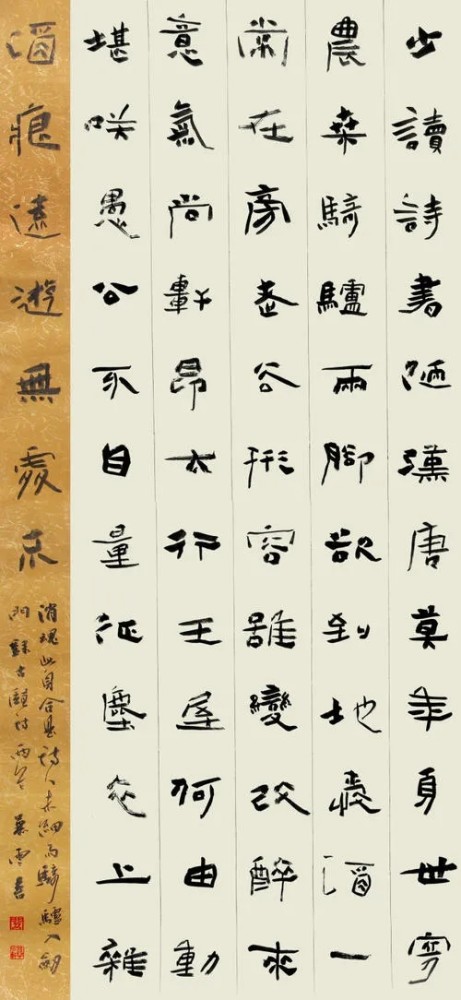 少讀詩書陋漢唐莫年身世寄
農桑騎驢兩腳欲到地愛酒一
常在旁老去形容雖變改醉來
意氣尚軒昂太行王屋何由動
堪咲愚公不自量征塵衣上雜
酒痕遠遊無處不
消魂此身合是詩人未細雨騎驢入劍
門 詩兩首 書